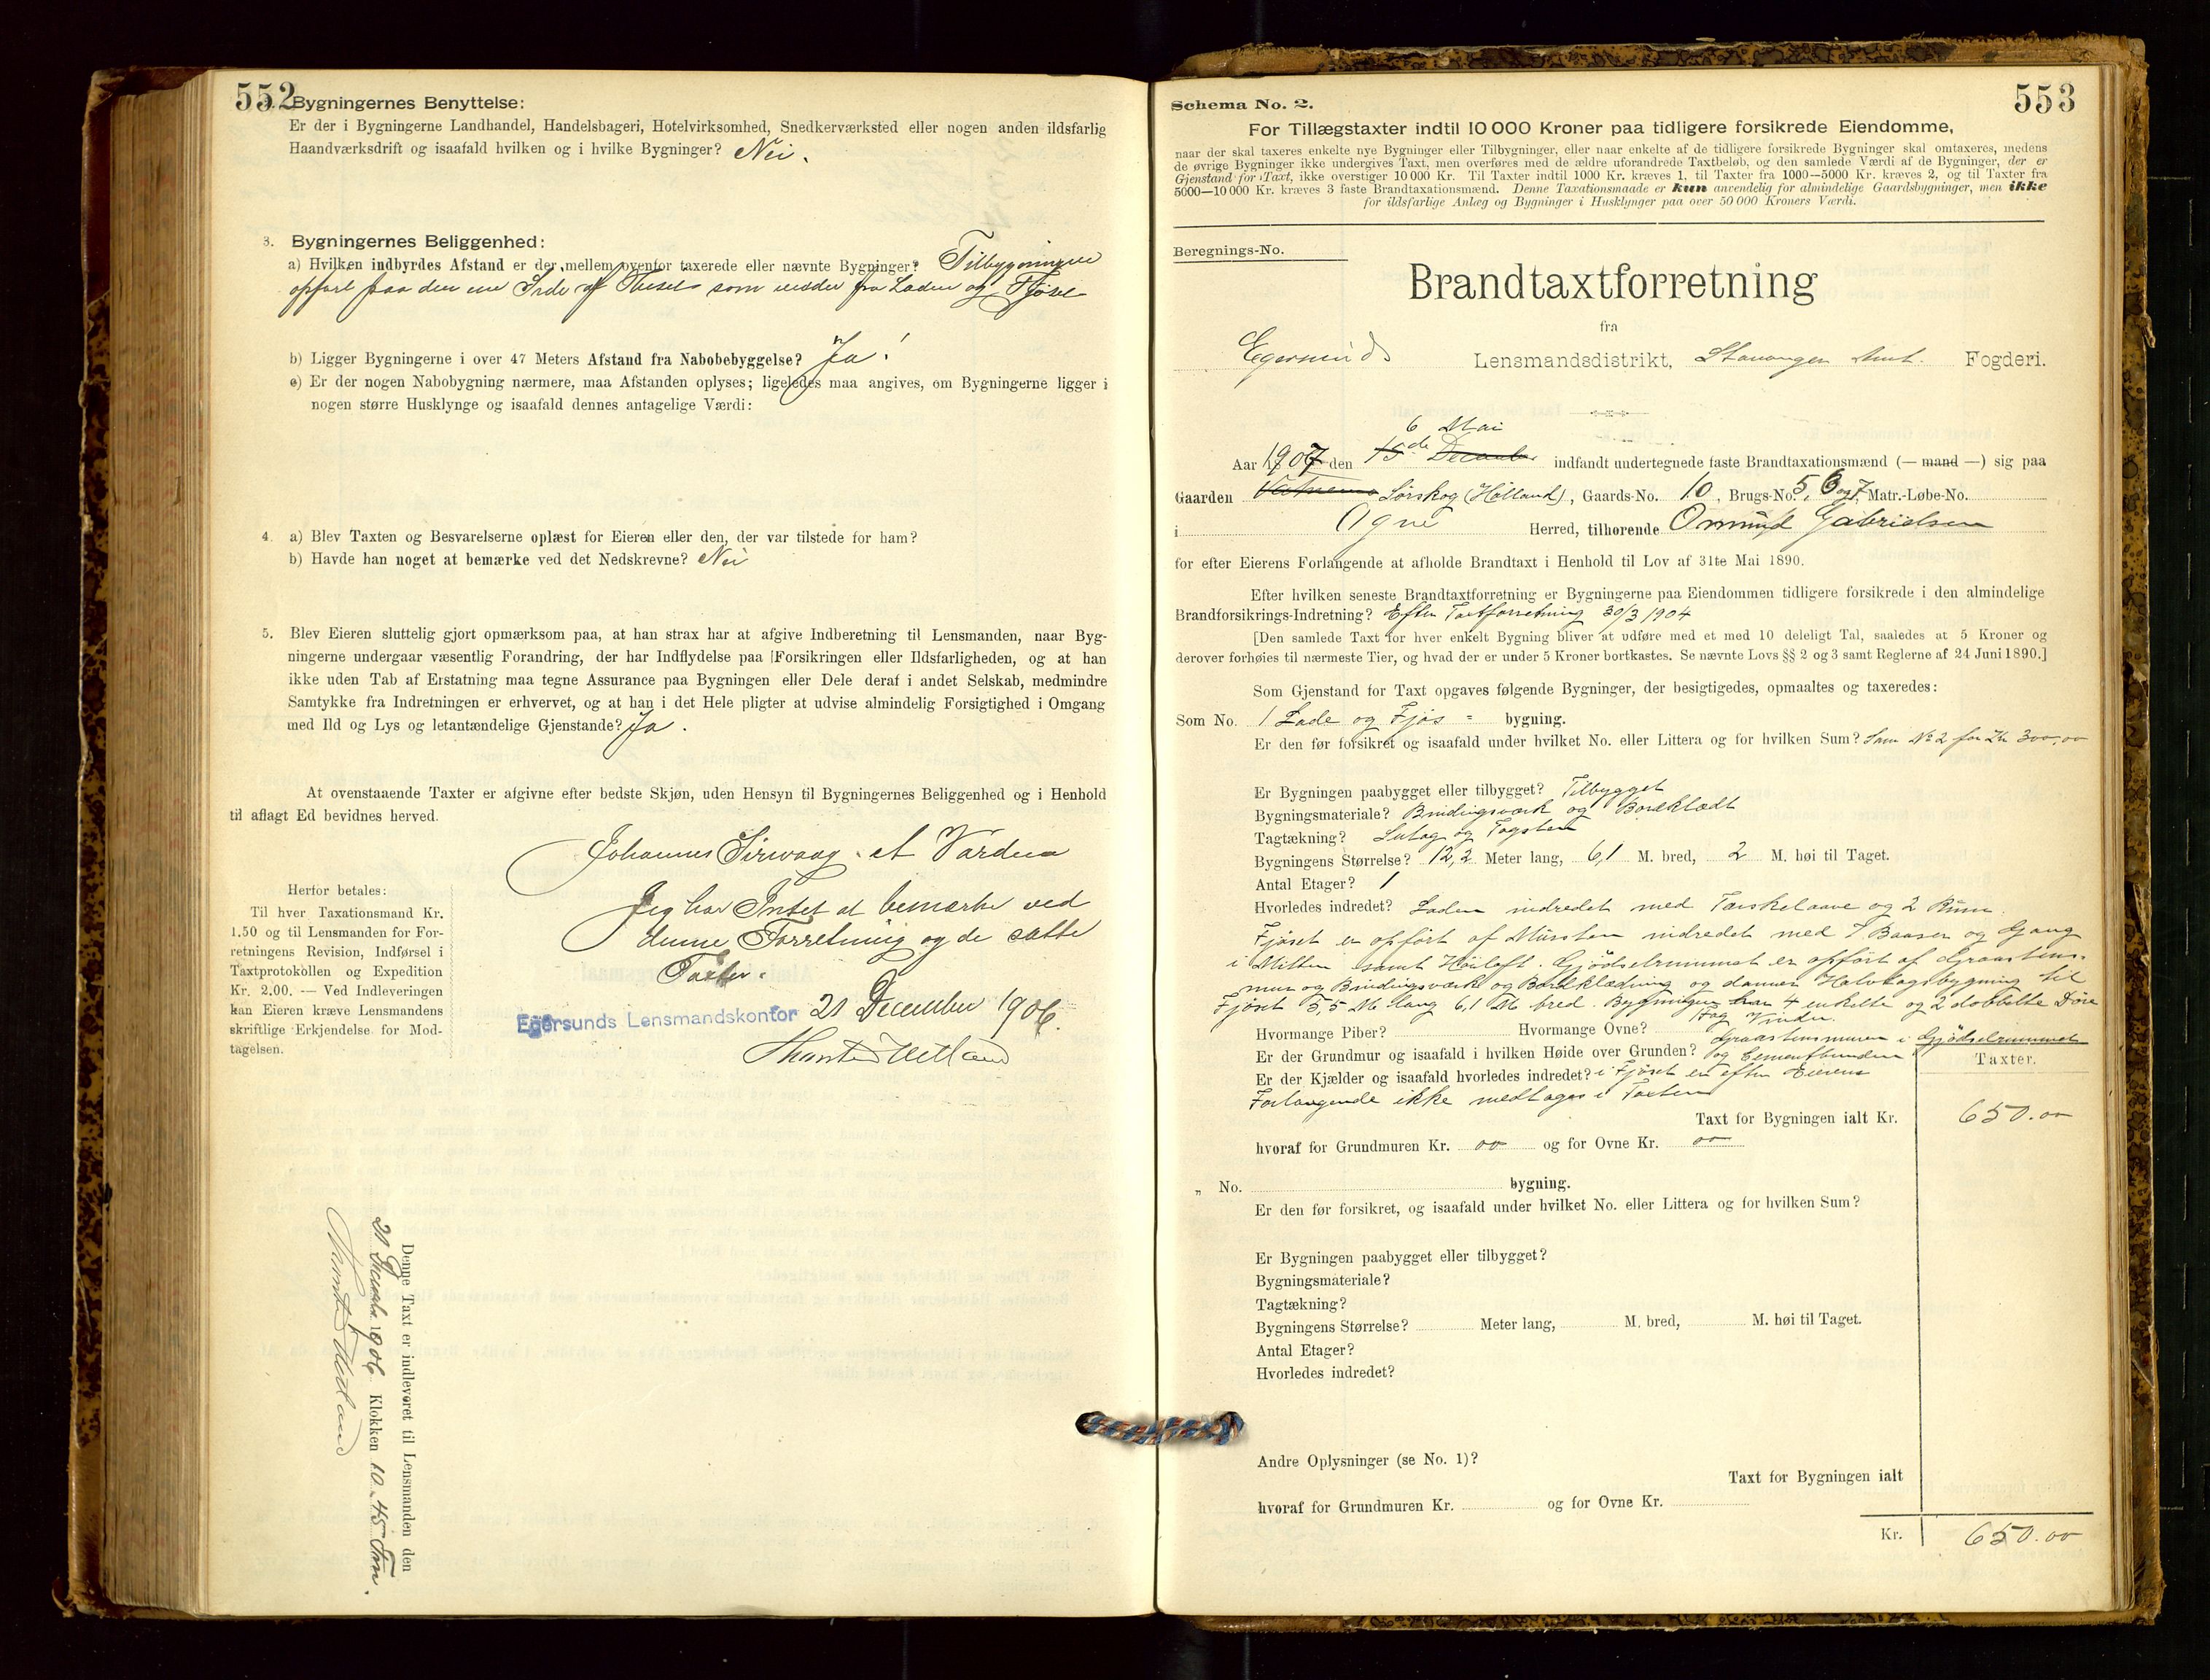 552
Bygningernes Benyttelse:
Er der i Bygningerne Landhandel, Handelsbageri, Hotelvirksomhed, Snedkerværksted eller nogen anden ildsfarlig
Haandværksdrift og isaafald hvilken og i hvilke Bygninger? Nei.
3. Bygningernes Beliggenhed:
a) Hvilken indbyrdes Afstand er der mellem ovenfor taxerede eller nævnte Bygninger? Tilbygningen
opført paa den ene Side af som fra Laden og Fjøset
b) Ligger Bygningerne i over 47 Meters Afstand fra Nabobebyggelse? Ja!
c) Er der nogen Nabobygning nærmere, maa Afstanden oplyses; ligeledes maa angives, om Bygningerne ligger i
nogen større Husklynge og isaafald dennes antagelige Værdi:
4. a) Blev Taxten og Besvarelserne oplæst for Eieren eller den, der var tilstede for ham?
b) Havde han noget at bemærke ved det Nedskrevne? Nei
5. Blev Eieren sluttelig gjort opmærksom paa, at han strax har at afgive Indberetning til Lensmanden, naar Byg-
ningerne undergaar væsentlig Forandring, der har Indflydelse paa Forsikringen eller Ildsfarligheden, og at han
ikke uden Tab af Erstatning maa tegne Assurance paa Bygningen eller Dele deraf i andet Selskab, medmindre
Samtykke fra Indretningen er erhvervet, og at han i det Hele pligter at udvise almindelig Forsigtighed i Omgang
med Ild og Lys og letantændelige Gjenstande? Ja.
At ovenstaaende Taxter er afgivne efter bedste Skjøn, uden Hensyn til Bygningernes Beliggenhed og i Henhold
til aflagt Ed bevidnes herved.
Johannes Sirevaag
Jeg har Intet at bemærke ved
denne Forretning og de satte
Taxter.
Egersunds Lensmandskontor 21 December 1906.
Herfor betales:
Til hver Taxationsmand Kr.
1.50 og til Lensmanden for For-
retningens Revision, Indførsel i
Taxtprotokollen og Expedition
Kr. 2.00. — Ved Indleveringen
kan Eieren kræve Lensmandens
skriftlige Erkjendelse for Mod-
tagelsen.
Denne Taxt er indleveret til Lensmanden den
21 Decembr 1906 Klokken 10.45 Fm.
553
Schema No. 2.
For Tillægstaxter indtil 10 000 Kroner paa tidligere forsikrede Eiendomme,
naar der skal taxeres enkelte nye Bygninger eller Tilbygninger, eller naar enkelte af de tidligere forsikrede Bygninger skal omtaxeres, medens
de øvrige Bygninger ikke undergives Taxt, men overføres med de ældre uforandrede Taxtbeløb, og den samlede Værdi af de Bygninger, der er
Gjenstand for Taxt, ikke overstiger 10 000 Kr. Til Taxter indtil 1000 Kr. kræves 1, til Taxter fra 1000—5000 Kr. kræves 2, og til Taxter fra
5000—10 000 Kr. kræves 3 faste Brandtaxationsmænd. Denne Taxationsmaade er kun anvendelig for almindelige Gaardsbygninger, men ikke
for ildsfarlige Anlæg og Bygninger i Husklynger paa over 50 000 Kroners Værdi.
Beregnings-No.
Brandtaxtforretning
fra
Egersunds Lensmandsdistrikt, Stavanger Amt. Fogderi.
6 Mai
Aar 1907 den 15de December indfandt undertegnede faste Brandtaxationsmænd (— mand —) sig paa
Gaarden Sørskog (Hølland), Gaards-No. 10, Brugs-No. 5, 6 og 7, Matr.-Løbe-No.
i Ogne Herred, tilhørende Omund Gabrielsen
for efter Eierens Forlangende at afholde Brandtaxt i Henhold til Lov af 31te Mai 1890.
Efter hvilken seneste Brandtaxtforretning er Bygningerne paa Eiendommen tidligere forsikrede i den almindelige
Brandforsikrings-Indretning? Efter Taxtforretning 30/3 1904
[Den samlede Taxt for hver enkelt Bygning bliver at udføre med et med 10 deleligt Tal, saaledes at 5 Kroner og
derover forhøies til nærmeste Tier, og hvad der er under 5 Kroner bortkastes. Se nævnte Lovs §§ 2 og 3 samt Reglerne af 24 Juni 1890.]
Som Gjenstand for Taxt opgaves følgende Bygninger, der besigtigedes, opmaaltes og taxeredes:
Som No. 1 Lade og Fjøs = bygning.
Er den før forsikret og isaafald under hvilket No. eller Littera og for hvilken Sum? Som No 2 for Kr 300,00
Er Bygningen paabygget eller tilbygget? Tilbygget
Bygningsmateriale? Bindingsværk og Bordklædt
Tagtækning? Sutag og Tagsten
Bygningens Størrelse? 12,2 Meter lang, 6,1 M. bred, 2 M. høi til Taget.
Antal Etager? 1
Hvorledes indredet? Laden indredet med Tærskelaave og 2 Rum.
Fjøset er opført af Mursten indredet med 7 Baaser og Gang
i Midten samt Høiloft. Gjødselrummet er opført af Graastens-
mur og Bindingsværk og Bordklædning og danner Halvtagsbygning til
Fjøset 5,5 M lang 6,1 M bred. Bygningen har 4 enkelte og 2 dobbelte Døre
og Vinduer.
Hvormange Piber? Hvormange Ovne? Graastensmuren i Gjødselrummet
Er der Grundmur og isaafald i hvilken Høide over Grunden? og Cementbunden
Er der Kjælder og isaafald hvorledes indredet? i Fjøset er efter Eierens
Forlangende ikke medtaget i Taxten
Taxter.
Taxt for Bygningen ialt Kr. 650.00
hvoraf for Grundmuren Kr. 00 og for Ovne Kr. 00
„ No. bygning.
Er den før forsikret, og isaafald under hvilket No. eller Littera og for hvilken Sum?
Er Bygningen paabygget eller tilbygget?
Bygningsmateriale?
Tagtækning?
Bygningens Størrelse? Meter lang, M. bred, M. høi til Taget.
Antal Etager?
Hvorledes indredet?
Andre Oplysninger (se No. 1)?
Taxt for Bygningen ialt
hvoraf for Grundmuren Kr. og for Ovne Kr.
Kr. 650.00